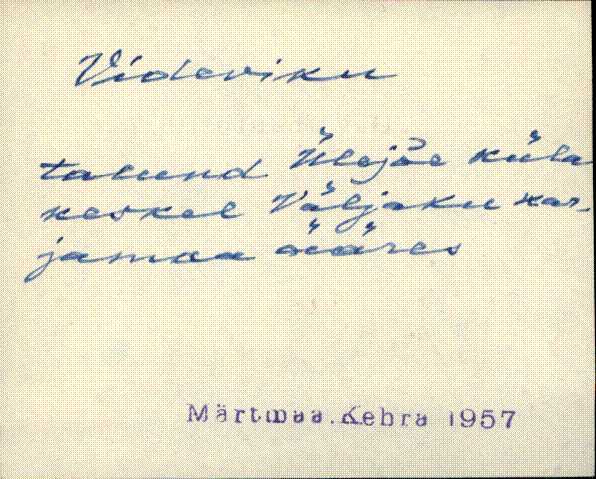 Videviku
talund Ülejõe küla
keskel Väljaku kar-
jamaa ääres
Märtmaa. Kehra 1957